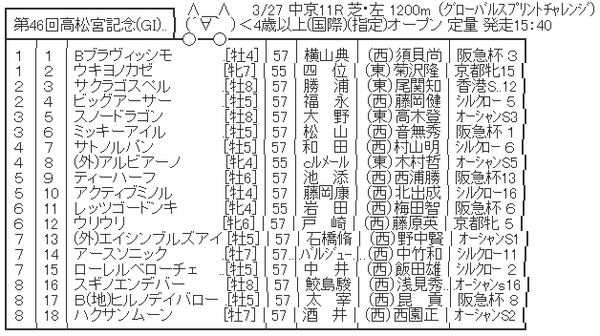 3/27 中京11R 芝・左 1200m (グローバルスプリントチャレンジ)
第46回高松宮記念(GI)..
(´∀`)<4歳以上(国際)(指定)オープン 定量 発走15:40
1│1│Bブラヴィッシモ [牡4]│57│横山典│(西)須貝尚│阪急杯 3
1│2│ウキヨノカゼ [牝7]│55│四位│(東)菊沢隆│京都牝15
2│3│サクラゴスペル [牡8]│57│勝浦│(東)尾関知│香港S..12
2│4│ビッグアーサー [牡5]│57│福永│(西)藤岡健│シルクロー 5
3│5│スノードラゴン [牡8]│57│大野│(東)高木登│オーシャンS3
3│6│ミッキーアイル [牡5]│57│松山│(西)音無秀│阪急杯 1
4│7│サトノルパン [牡5]│57│和田│(西)村山明│シルクロー 6
4│8│(外)アルビアーノ [牝4]│55│cルメール│(東)木村哲│オーシャンS5
5│9│ティーハーフ [牡6]│57│池添│(西)西浦勝│阪急杯13
5│10│アクティブミノル [牡4]│57│藤岡康│(西)北出成│シルクロー16
6│11│レッツゴードンキ [牝4]│55│岩田│(西)梅田智│阪急杯 6
6│12│ウリウリ [牝6]│57│戸崎│(西)藤原英│京都牝 5
7│13│(外)エイシンブルズアイ [牡5]│57│石橋脩│(西)野中賢│オーシャンS1
7│14│アースソニック [牡7]│57..│バルジュー..│(西)中竹和│シルクロー11
7│15│ローレルベローチェ [牡5]│57│中井│(西)飯田雄│シルクロー 2
8│16│スギノエンデバー [牡8]│57│鮫島駿│(西)浅見秀..│オーシャンs16
8│17│B(地)ヒルノデイバロー [牡5]│57│太宰│(西)昆貢│阪急杯 8
8│18│ハクサンムーン [牡7]│57│酒井│(西)西園正│オーシャンS2